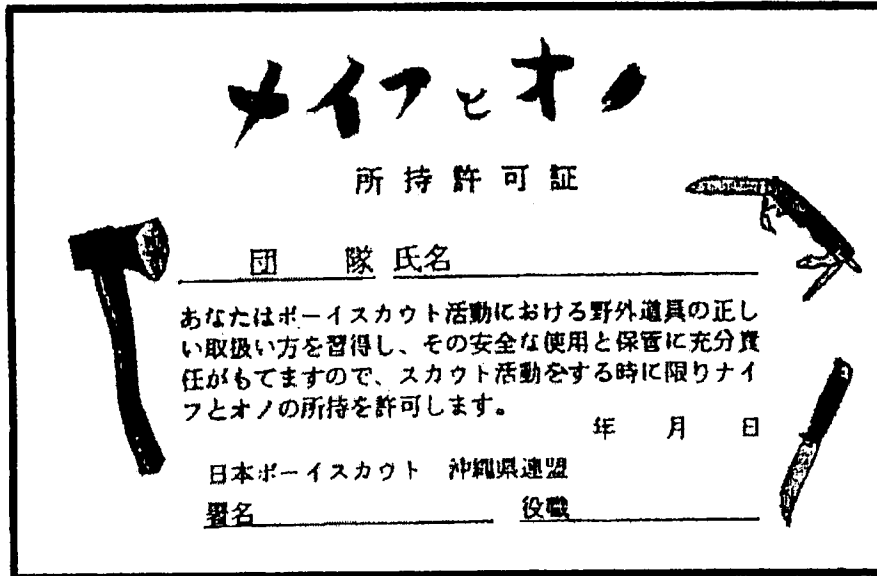 ナイフとオノ
所持許可証
団 隊 氏名
あなたはボーイスカウト活動における野外道具の正し
い取扱い方を習得し、その安全な使用と保管に充分責
任がもてますので、スカウト活動をする時に限りナイ
フとオノの所持を許可します。
年 月 日
日本ボーイスカウト 沖縄県連盟
署名 役職